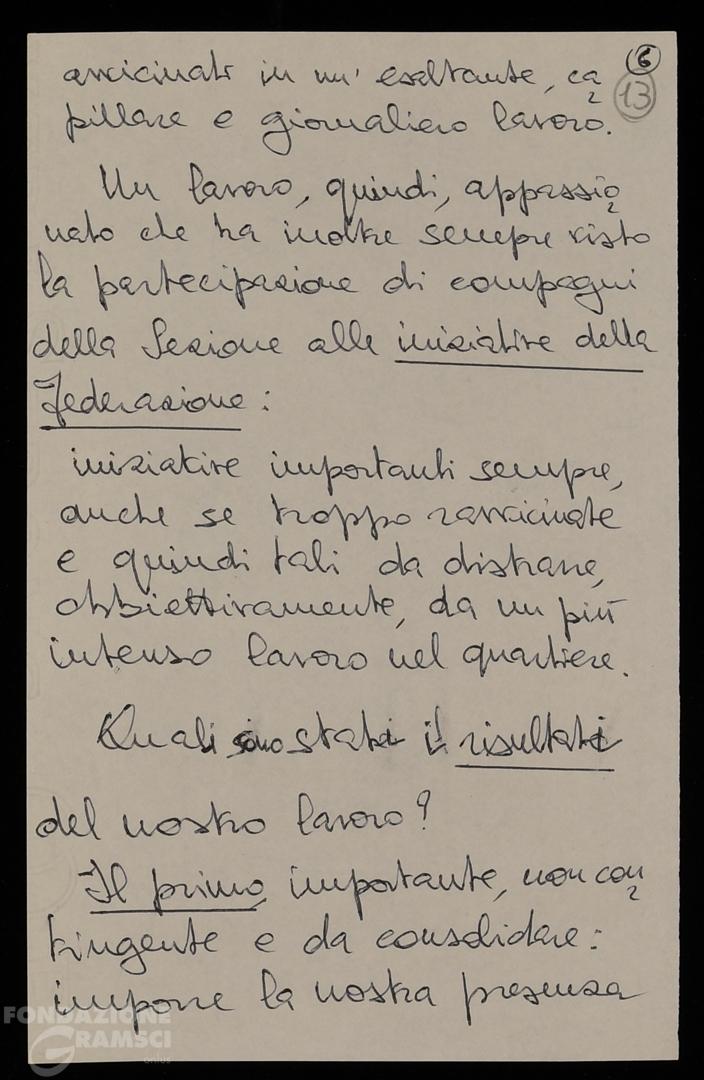 6
13
avvicinati in un' esaltante, ca
pillare e giornaliero lavoro.
Un lavoro, quindi, appassio
nato che ha inoltre sempre visto
la partecipazione di compagni
della Sezione alle iniziative della
Federazione:
iniziative importanti sempre,
anche se troppo ravvicinate
e quindi tali da distrarre,
obbiettivamente, da un più
intenso lavoro nel quartiere.
Quali sono stati i risultati
del nostro lavoro?
Il primo, importante, non con
tingente e da consolidare:
imporre la nostra presenza
FONDAZIONE
GRAMSCI
onlus